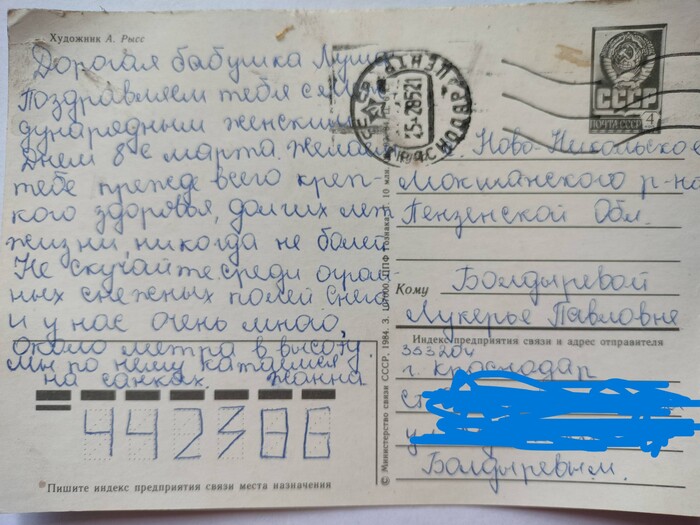 Художник А. Рысс
Дорогая бабушка Луша
Поздравляем тебя с меж
дународным женским
Днем 8е марта. Желаем
тебе прежде всего креп-
кого здоровья, долгих лет
жизни, никогда не болей.
Не скучайте среди огром-
ных снежных полей. Снега
и у нас очень много,
около метра в высоту.
Мы по нему катаемся
на санках. Жанна
442306
Пишите индекс предприятия связи места назначения
© Министерство связи СССР, 1984. З. ППФ Гознака. 10 млн.
КРАСНОДАР ПОЧТАМТ
СССР
ПОЧТА СССР 4
с. Ново-Никольское
Мокшанского р-на
Пензенской Обл.
Кому Болдыревой
Лукерье Павловне
Индекс предприятия связи и адрес отправителя
353204
г. Краснодар
Болдыревым.